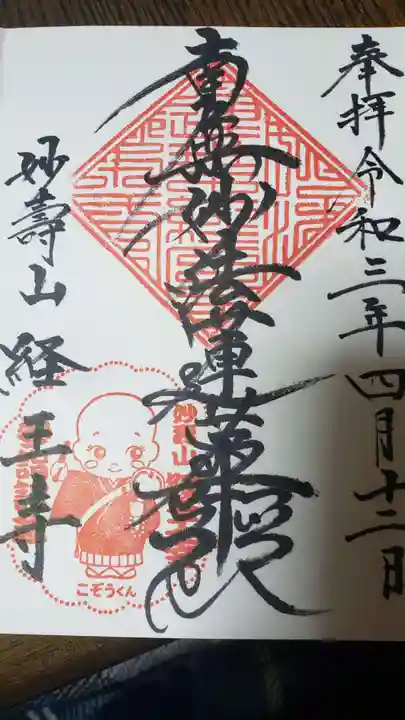 奉拝令和三年四月十二日
南無妙法蓮華経
妙壽山経王寺
妙壽山
こぞうくん